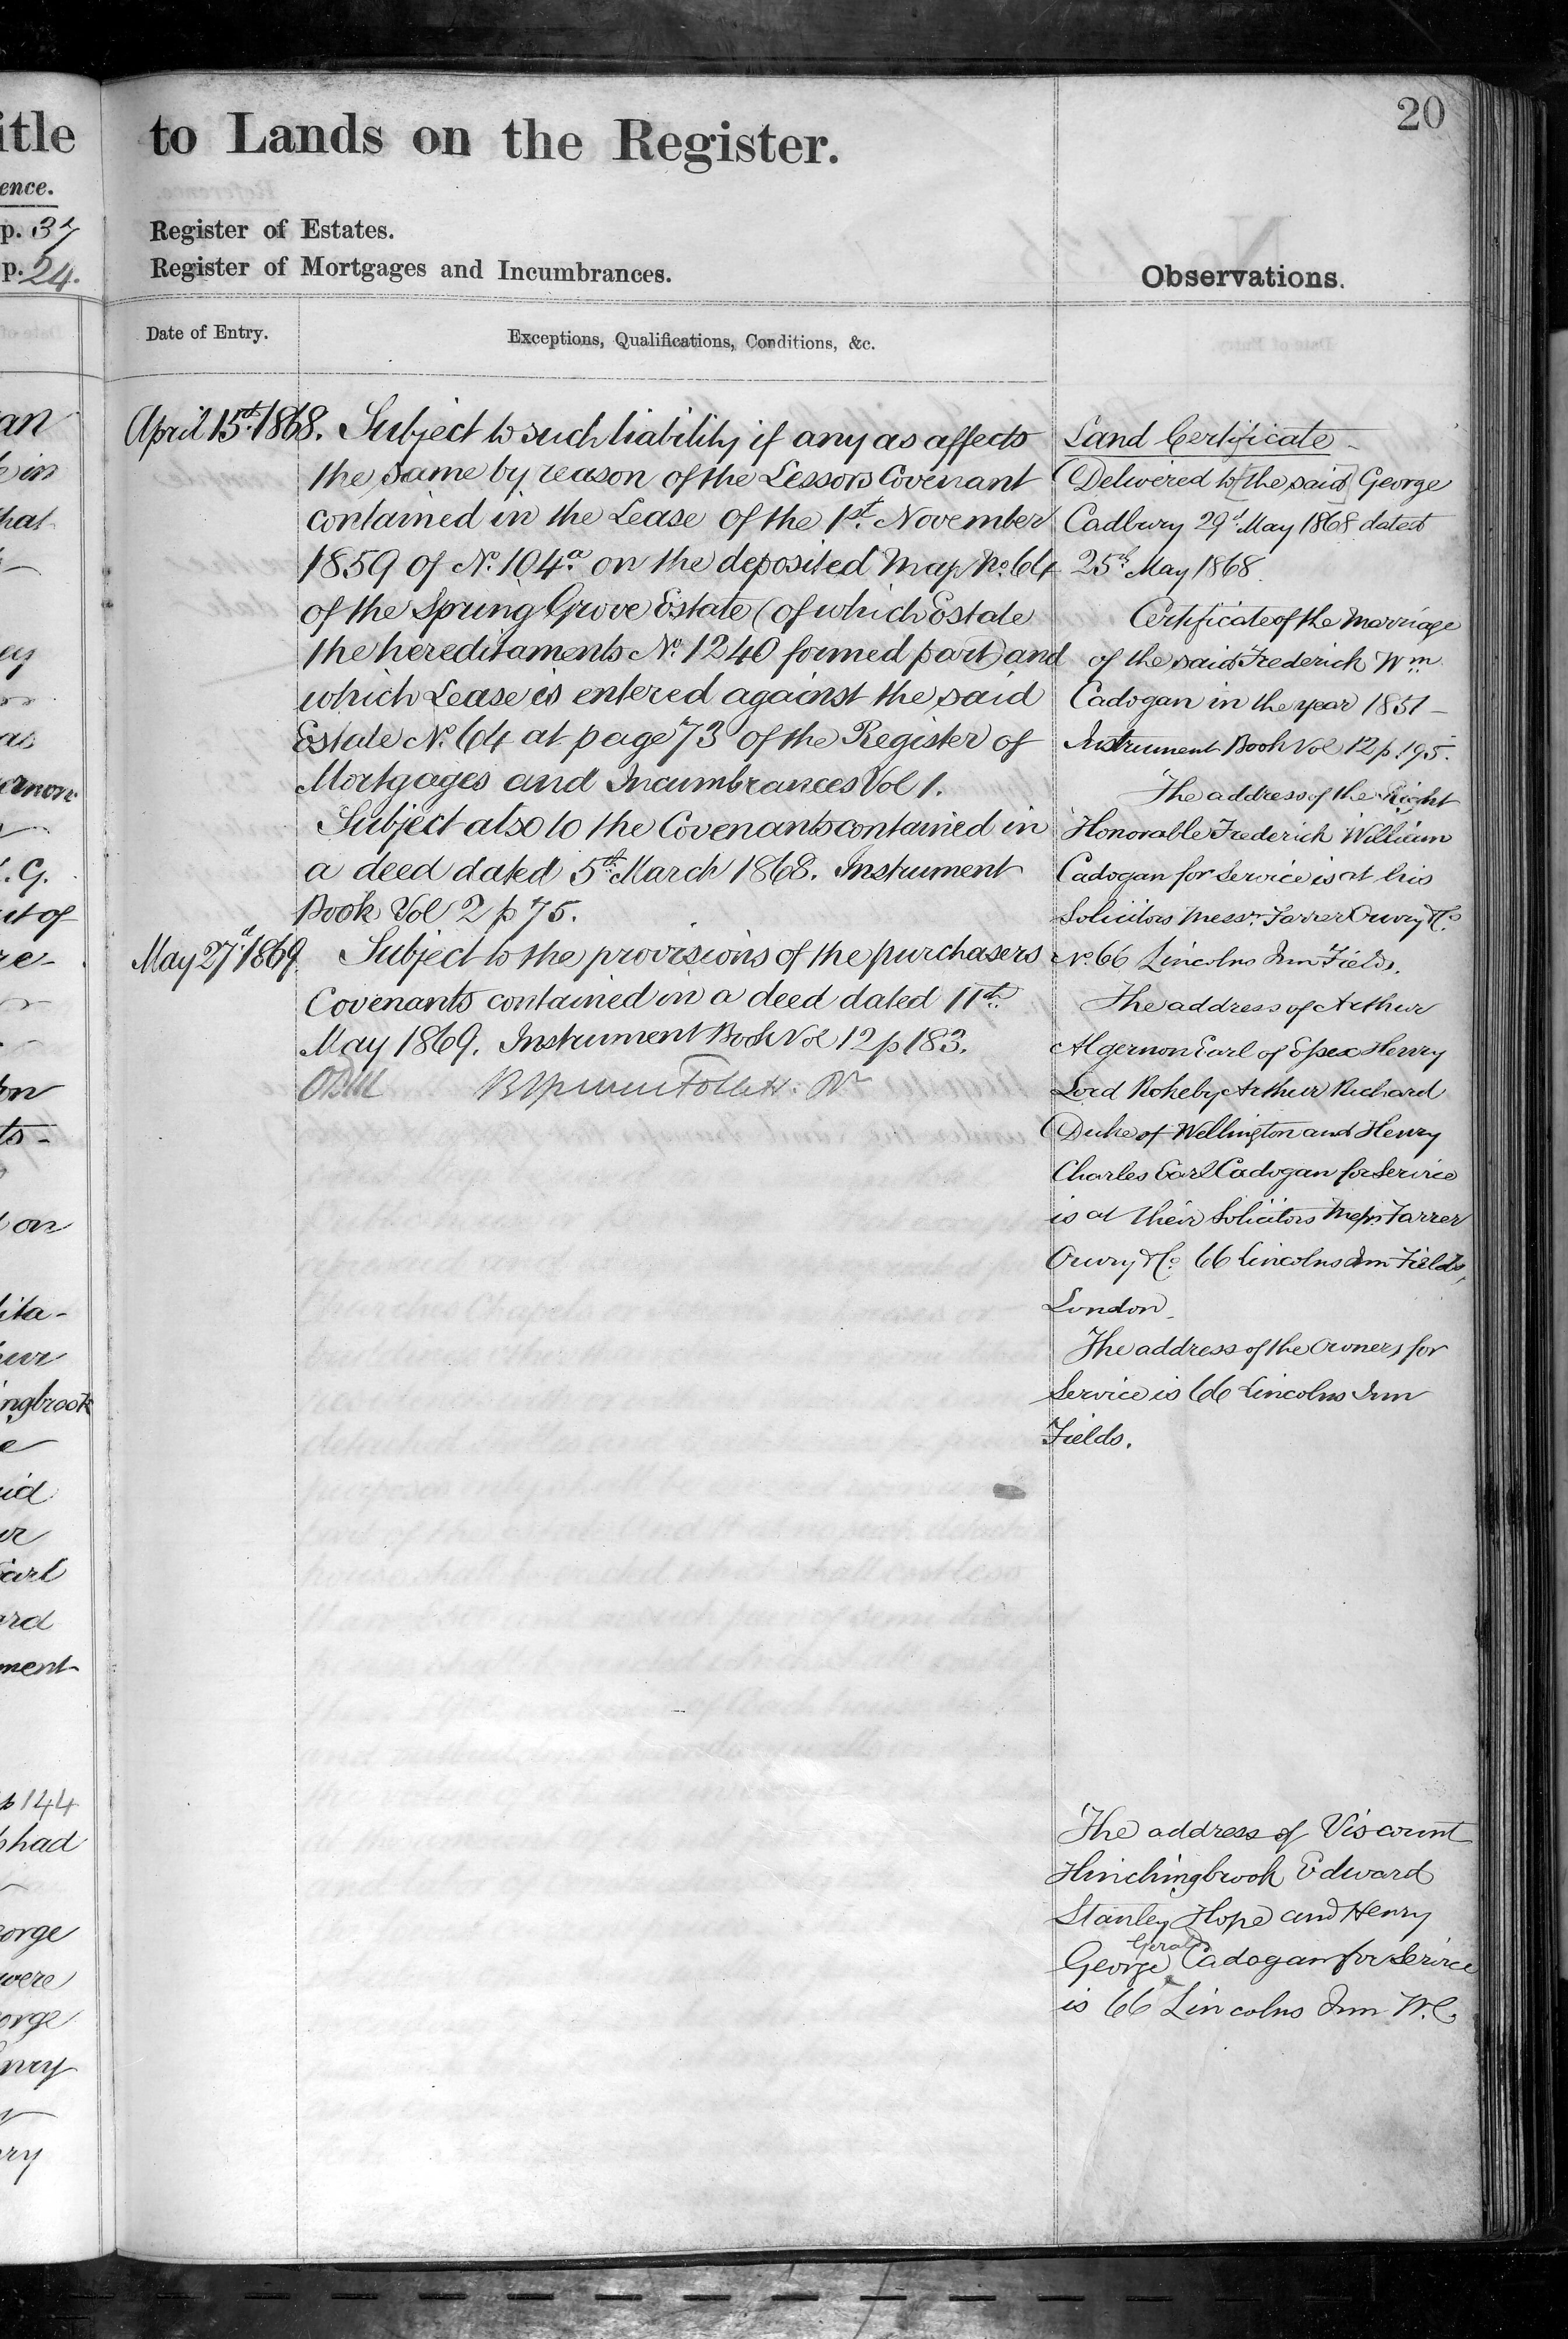 20
itle to Lands on the Register.
ence.
p. 37 Register of Estates.
p. 24. Register of Mortgages and Incumbrances.
Observations.
Date of Entry. Exceptions, Qualifications, Conditions, &c.
April 15th 1868. Subject to such liability if any as affects
the same by reason of the Lessors Covenant
contained in the Lease of the 1st. November
1859 of No. 104a on the deposited Map No. 64
of the Spring Grove Estate (of which Estate
the hereditaments No. 1240 formed part) and
which Lease is entered against the said
Estate No. 64 at page 73 of the Register of
Mortgages and Incumbrances Vol 1.
Subject also to the Covenants contained in
a deed dated 5th March 1868. Instrument
Book Vol 2 p 75.
May 27th 1869 Subject to the provisions of the purchasers
Covenants contained in a deed dated 11th
May 1869. Instrument Book Vol 12 p 183.
Land Certificate
Delivered to [the said] George
Cadbury 29th May 1868 dated
25th May 1868.
Certificate of the Marriage
of the said Frederick Wm
Cadogan in the year 1851 -
Instrument Book Vol 12 p. 195.
The address of the Right
Honorable Frederick William
Cadogan for Service is at his
Solicitors Messrs. Farrer Ouvry & Co
No. 66 Lincolns Inn Fields.
The address of Arthur
Algernon Earl of Essex Henry
Lord Rokeby Arthur Richard
Duke of Wellington and Henry
Charles Earl Cadogan for Service
is at their Solicitors Messrs Farrer
Ouvry & Co. 66 Lincolns Inn Fields,
London.
The address of the Owners for
Service is 66 Lincolns Inn
Fields.
The address of Viscount
Hinchingbrook Edward
Stanley Hope and Henry
George Gerald Cadogan for Service
is 66 Lincolns Inn W.C.
an
in
hat
ey
as
ernon
.G.
ut of
re-
on
ts-
on
dita-
hur
ingbrook
e
aid
ur
Earl
ard
ment-
p 144
had
eorge
were
orge
enry
ry